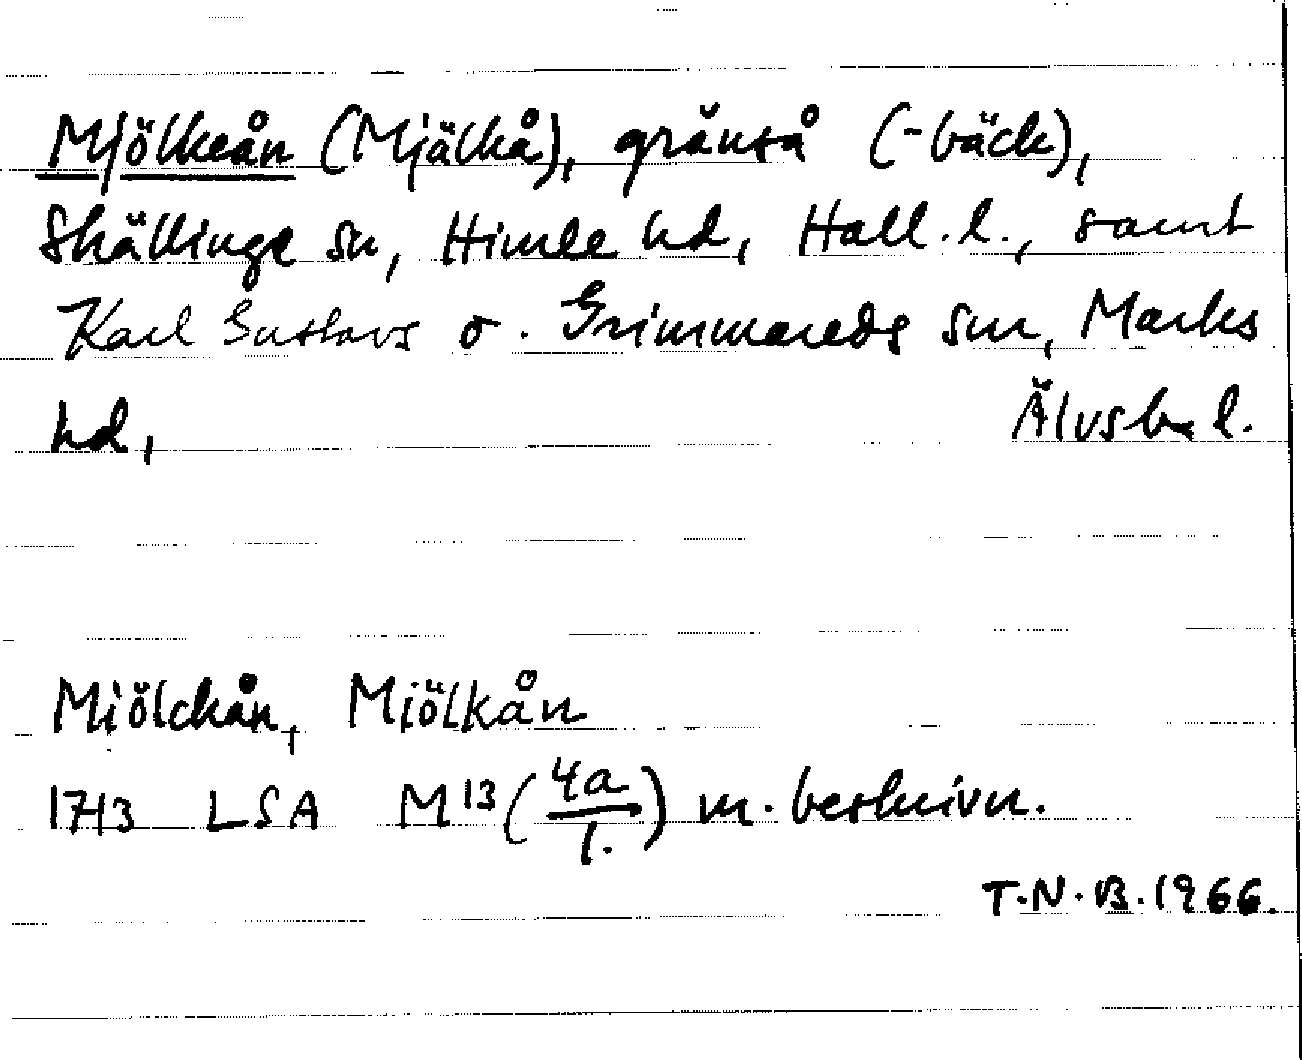 Mjölkeån (Mjälkå), gränså (-bäck),
Skällinge sn, Himle hd, Hall. l., samt
Karl Gustavs o. Grimmareds snr, Marks
hd, Älvsb. l.
Miölckån, Miölkån
1713 LSA M13 (4a/1.) m. beskrivn.
T.N.B. 1966.